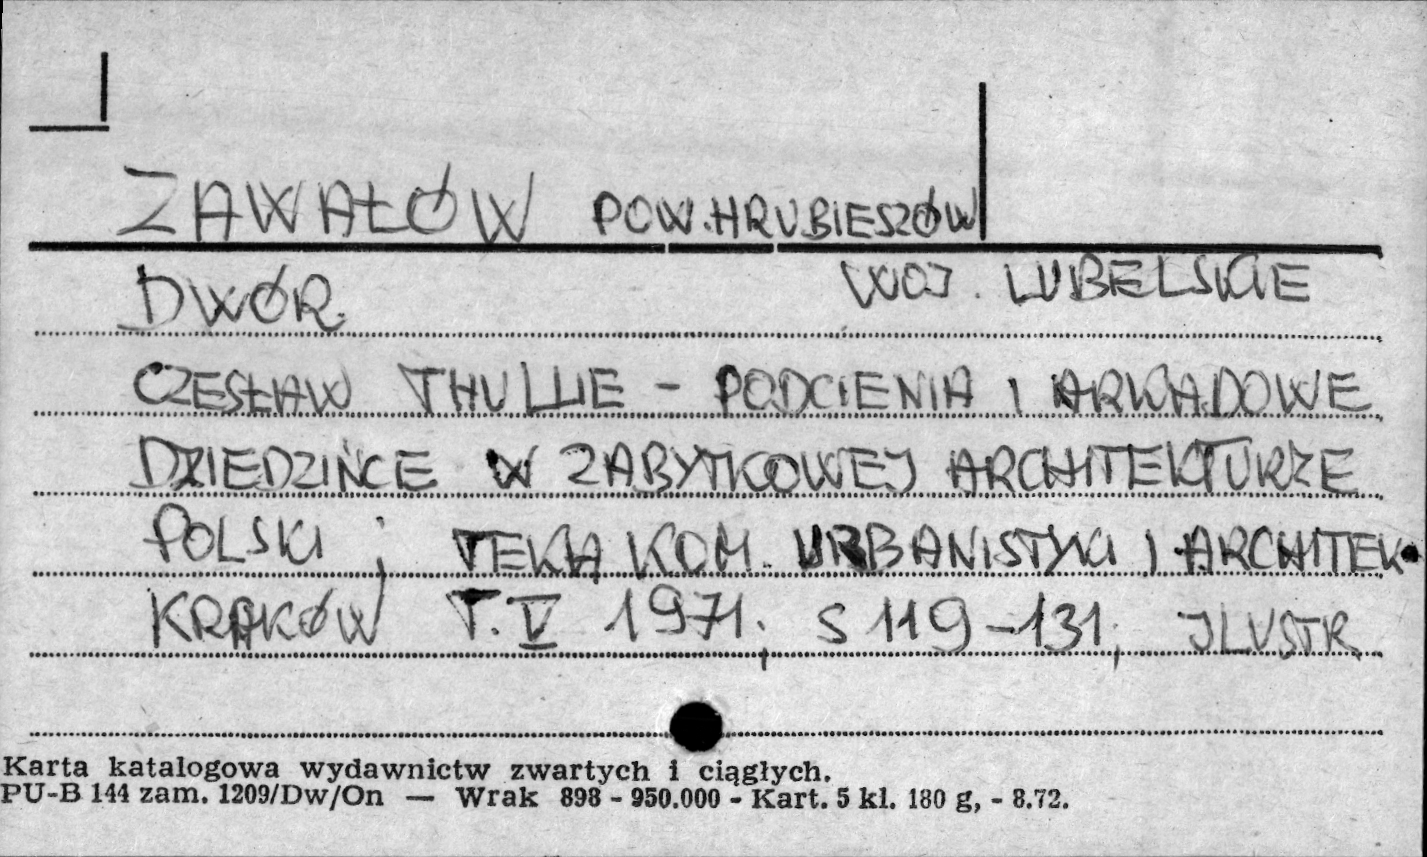 ZAWAŁÓW POW. HRUBIESZÓW
DWÓR WOJ. LUBELSKIE
CZESŁAW THULLIE - PODCIENIA I ARKADOWE
DZIEDZIŃCE W ZABYTKOWEJ ARCHITEKTURZE
POLSKI ; TEKA KOM. URBANISTYKI I ARCHITEK.
KRAKÓW T. V 1971; S 119-131; ILUSTR
Karta katalogowa wydawnictw zwartych i ciągłych.
PU-B 144 zam. 1209/Dw/On — Wrak 898 - 950.000 - Kart. 5 kl. 180 g, - 8.72.